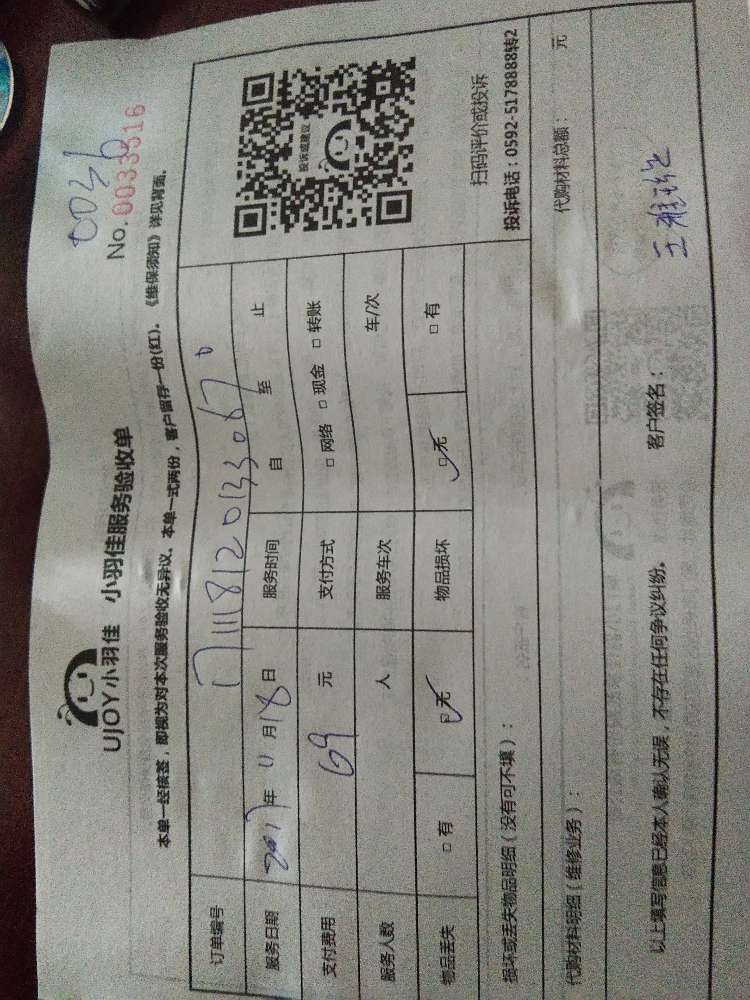 0036
No. 0033516
UJOY小羽佳 小羽佳服务验收单
本单一经核签，即视为对本次服务验收无异议。本单一式两份，客户留存一份(红)。《维保须知》详见背面。
订单编号 1711181201330670
服务日期 2017年 11月18日 服务时间 自 至 止
支付费用 69 元 支付方式 □ 网络 □ 现金 □ 转账
服务人数 人 服务车次 车/次
物品丢失 □ 有 □ 无 物品损坏 □ 无 □ 有
投诉或建议
扫码评价或投诉
投诉电话：0592-5178888转2
损坏或丢失物品明细（没有可不填）：
代购材料明细（维修业务）： 代购材料总额： 元
以上填写信息已经本人确认无误，不存在任何争议纠纷。 客户签名：